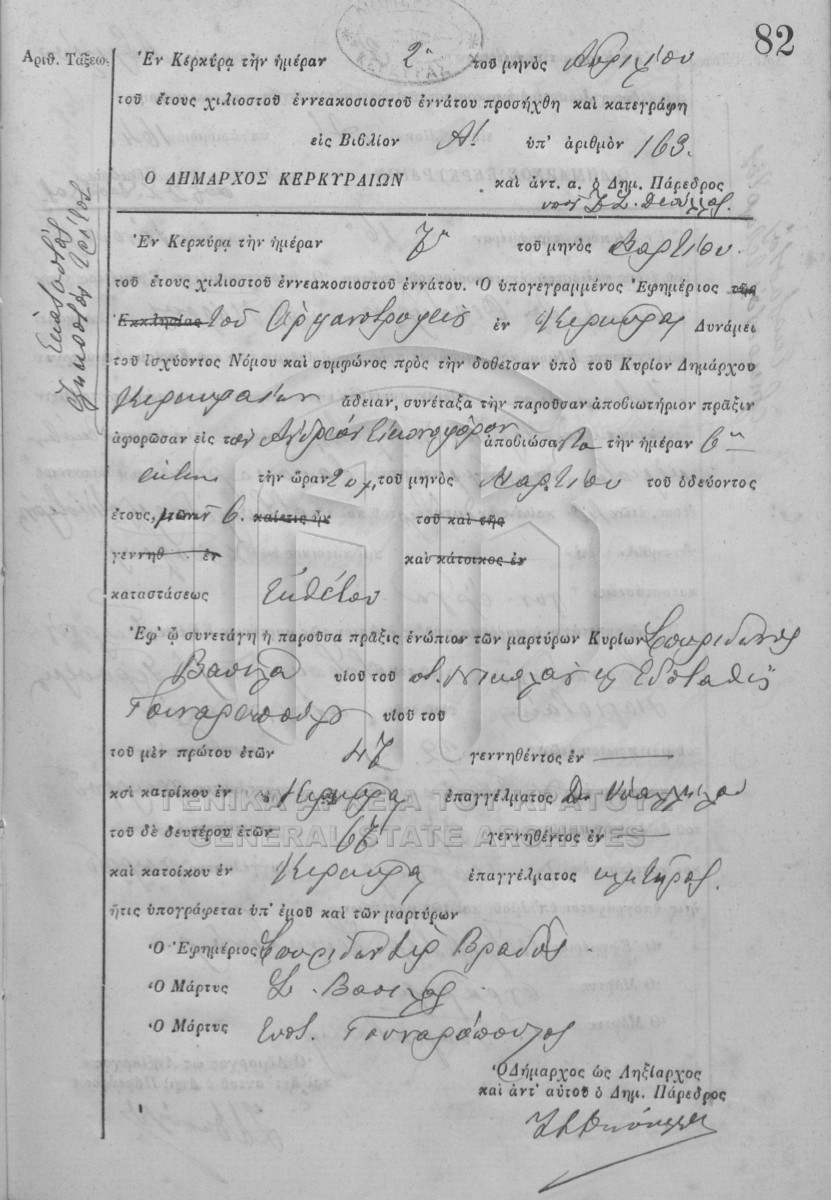 82
Ἀριθ. Τάξεω.
Ἐν Κέρκυρᾳ τὴν ἡμέραν 2α τοῦ μηνὸς Ἀπριλίου
τοῦ ἔτους χιλιοστοῦ ἐννεακοσιοστοῦ ἐννάτου προσήχθη καὶ κατεγράφη
εἰς Βιβλίον Α! ὑπ' ἀριθμὸν 163.
Ὁ ΔΗΜΑΡΧΟΣ ΚΕΡΚΥΡΑΙΩΝ καὶ ἀντ. α. ὁ Δημ. Πάρεδρος
Ἐν Κερκύρᾳ τὴν ἡμέραν 7η τοῦ μηνὸς Μαρτίου
τοῦ ἔτους χιλιοστοῦ ἐννεακοσιοστοῦ ἐννάτου. Ὁ ὑπογεγραμμένος Ἐφημέριος τῆς
Ἐκκλησίας τοῦ Ὀρφανοτροφείου ἐν Κερκύρᾳ Δυνάμει
τοῦ ἰσχύοντος Νόμου καὶ συμφώνος πρὸς τὴν δοθεῖσαν ὑπὸ τοῦ Κυρίου Δημάρχου
Κερκυραίων ἄδειαν, συνέταξα τὴν παροῦσαν ἀποβιωτήριον πρᾶξιν
ἀφορῶσαν εἰς τὸν Ἀνδρέαν ἀποβιώσαντα τὴν ἡμέραν 6η
τὴν ὥραν 2 μ. τοῦ μηνὸς Μαρτίου τοῦ ὁδεύοντος
ἔτους, μηνῶν 6. καὶ ετις ἦν τοῦ καὶ τῆς
γεννηθ ἐν καὶ κάτοικος ἐν
καταστάσεως Ἐκθέτου
Ἐφ' ᾧ συνετάγη ἡ παροῦσα πρᾶξις ἐνώπιον τῶν μαρτύρων Κυρίων Σπυρίδωνος
Βασιλᾶ υἱοῦ τοῦ ποτ. Νικολάου κ Εὐσταθίου
Γουναροπούλου υἱοῦ τοῦ
τοῦ μὲν πρώτου ἐτῶν 47 γεννηθέντος ἐν
κσὶ κατοίκου ἐν Κερκύρᾳ ἐπαγγέλματος Δ. Ὑπαλλήλου
ΓΕΝΙΚΑ ΑΡΧΕΙΑ ΤΟΥ ΚΡΑΤΟΥΣ
τοῦ δὲ δευτέρου ἐτῶν 67 γεννηθέντος ἐν
GENERAL STATE ARCHIVES
καὶ κατοίκου ἐν Κερκύρᾳ ἐπαγγέλματος κλητῆρος.
ἥτις ὑπογράφεται ὑπ' ἐμοῦ καὶ τῶν μαρτύρων
Ὁ Ἐφημέριος Σπυρίδων Βραδὸς
Ὁ Μάρτυς Σ. Βασιλᾶς
Ὁ Μάρτυς Ευσ. Γουναρόπουλος
Ὁ Δήμαρχος ὡς Ληξίαρχος
καὶ ἀντ' αὐτοῦ ὁ Δημ. Πάρεδρος